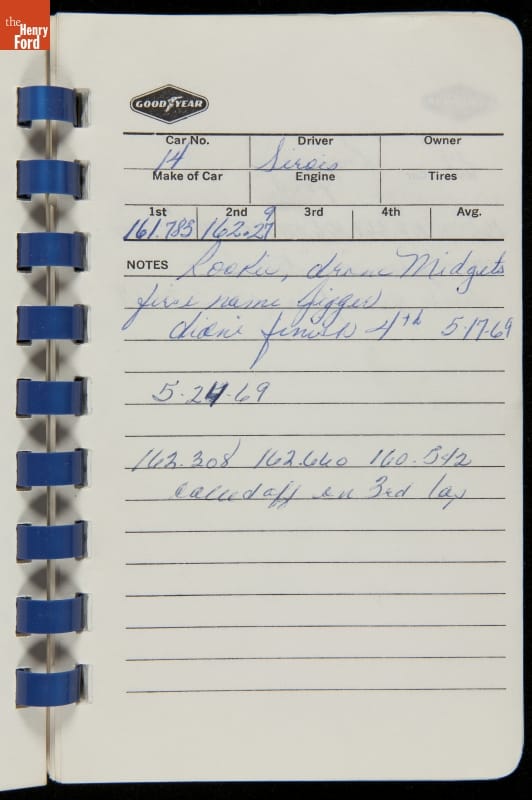 the
Henry
Ford
GOODYEAR
Car No. Driver Owner
14 Sirois
Make of Car Engine Tires
1st 2nd 3rd 4th Avg.
161.785 162.279
NOTES Rookie, drove Midgets
first name Jigger
didn't finish 4th 5-17-69
5-24-69
162.308 162.640 160.542
called off on 3rd lap